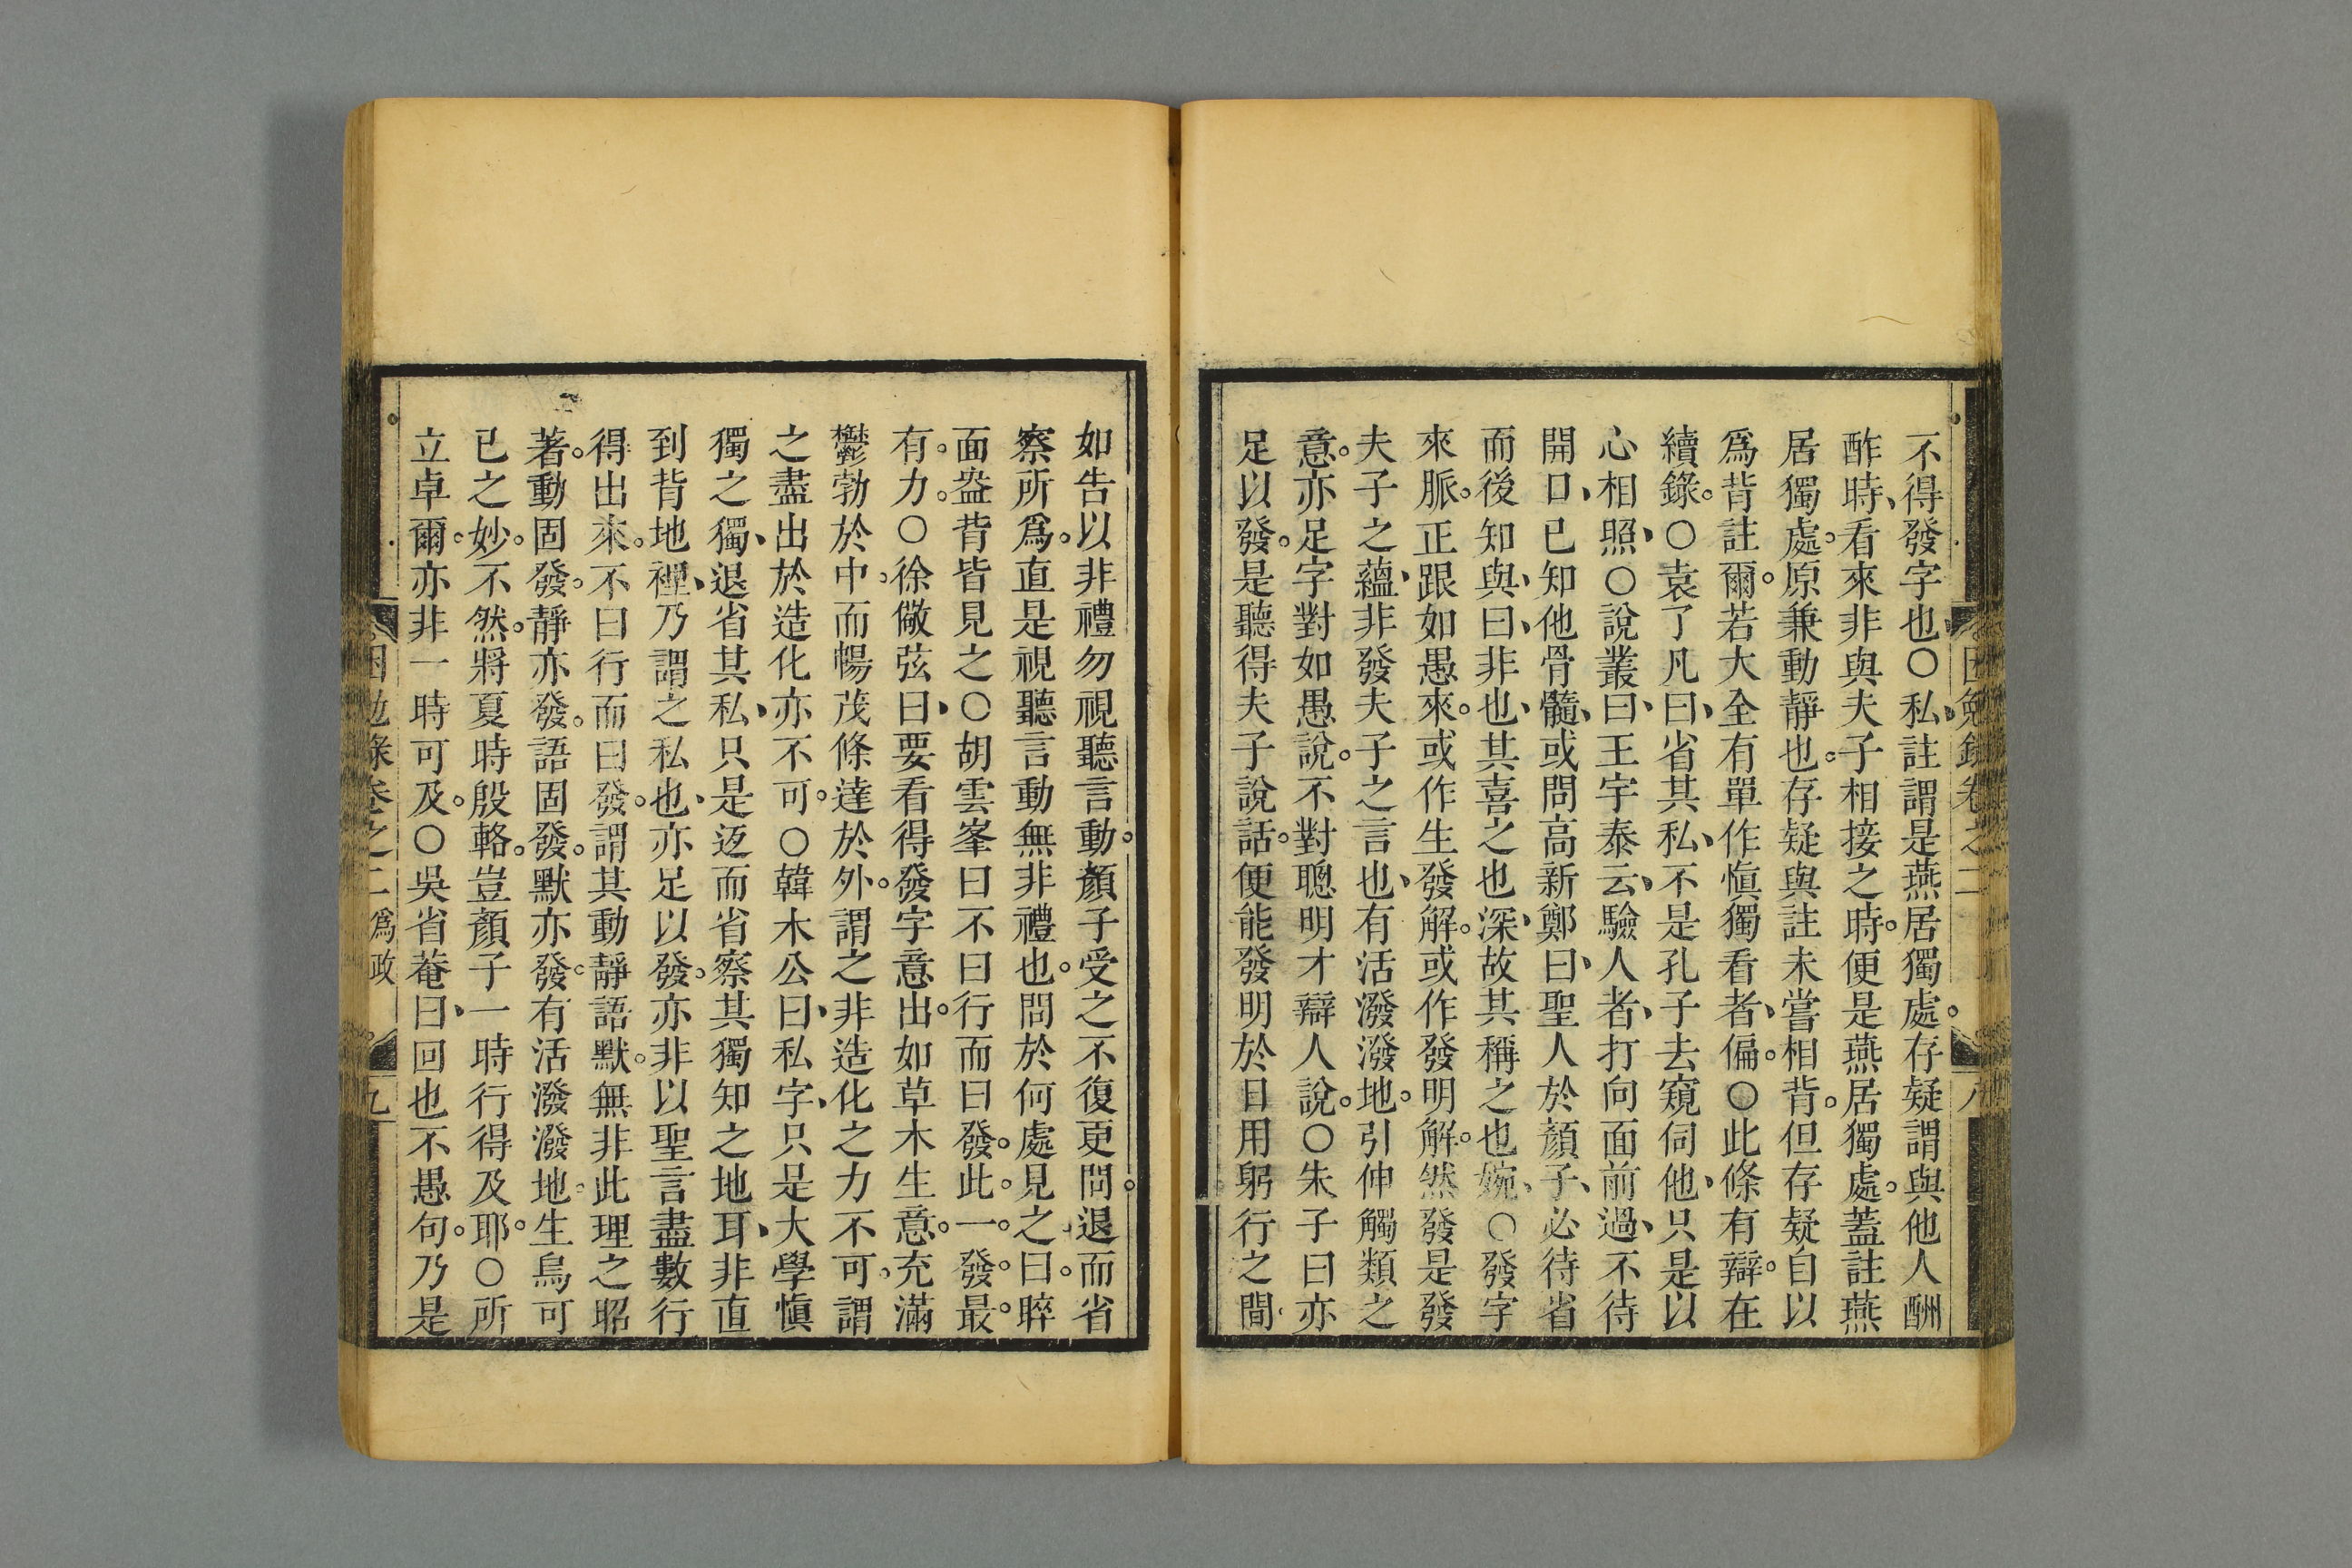 不得發字也○私註謂是燕居獨處。存疑謂與他人酬
酢時、看來非與夫子相接之時。便是燕居獨處。蓋註燕
居獨處。原兼動靜也。存疑與註未嘗相背。但存疑自以
爲背註爾。若大全有單作愼獨看者、偏。○此條有辯。在
續錄。○袁了凡曰、省其私、不是孔子去窺伺他、只是以
心相照、○說叢曰、王宇泰云、驗人者、打向面前過、不待
開口、已知他骨髓、或問高新鄭曰、聖人於顏子、必待省
而後知與、曰、非也、其喜之也深、故其稱之也婉、○發字
來脈。正跟如愚來。或作生發解。或作發明解。然發是發
夫子之蘊、非發夫子之言也、有活潑潑地。引伸觸類之
意。亦足字對如愚說。不對聰明才辯人說。○朱子曰亦
足以發。是聽得夫子說話。便能發明於日用躬行之間
困勉錄卷之二 八
如告以非禮勿視聽言動。顏子受之不復更問。退而省
察所爲。直是視聽言動無非禮也。問於何處見之。曰。睟
面盎背皆見之○胡雲峯曰不曰行而曰發。此。一。發。最。
有。力。○徐儆弦曰、要看得發字意出。如草木生意。充滿
鬱勃於中。而暢茂條達於外。謂之非造化之力不可。謂
之盡出於造化亦不可。○韓木公曰、私字、只是大學愼
獨之獨、退省其私、只是返而省察其獨知之地耳、非直
到背地裡、乃謂之私也、亦足以發、亦非以聖言盡數行
得出來。不曰行而曰發。謂其動靜語默。無非此理之昭
著。動固發。靜亦發。語固發。默亦發。有活潑潑地。生烏可
已之妙。不然。將夏時殷輅。豈顏子一時行得及耶。○所
立卓爾。亦非一時可及。○吳省菴曰、回也不愚句。乃是
困勉錄卷之二 爲政 九